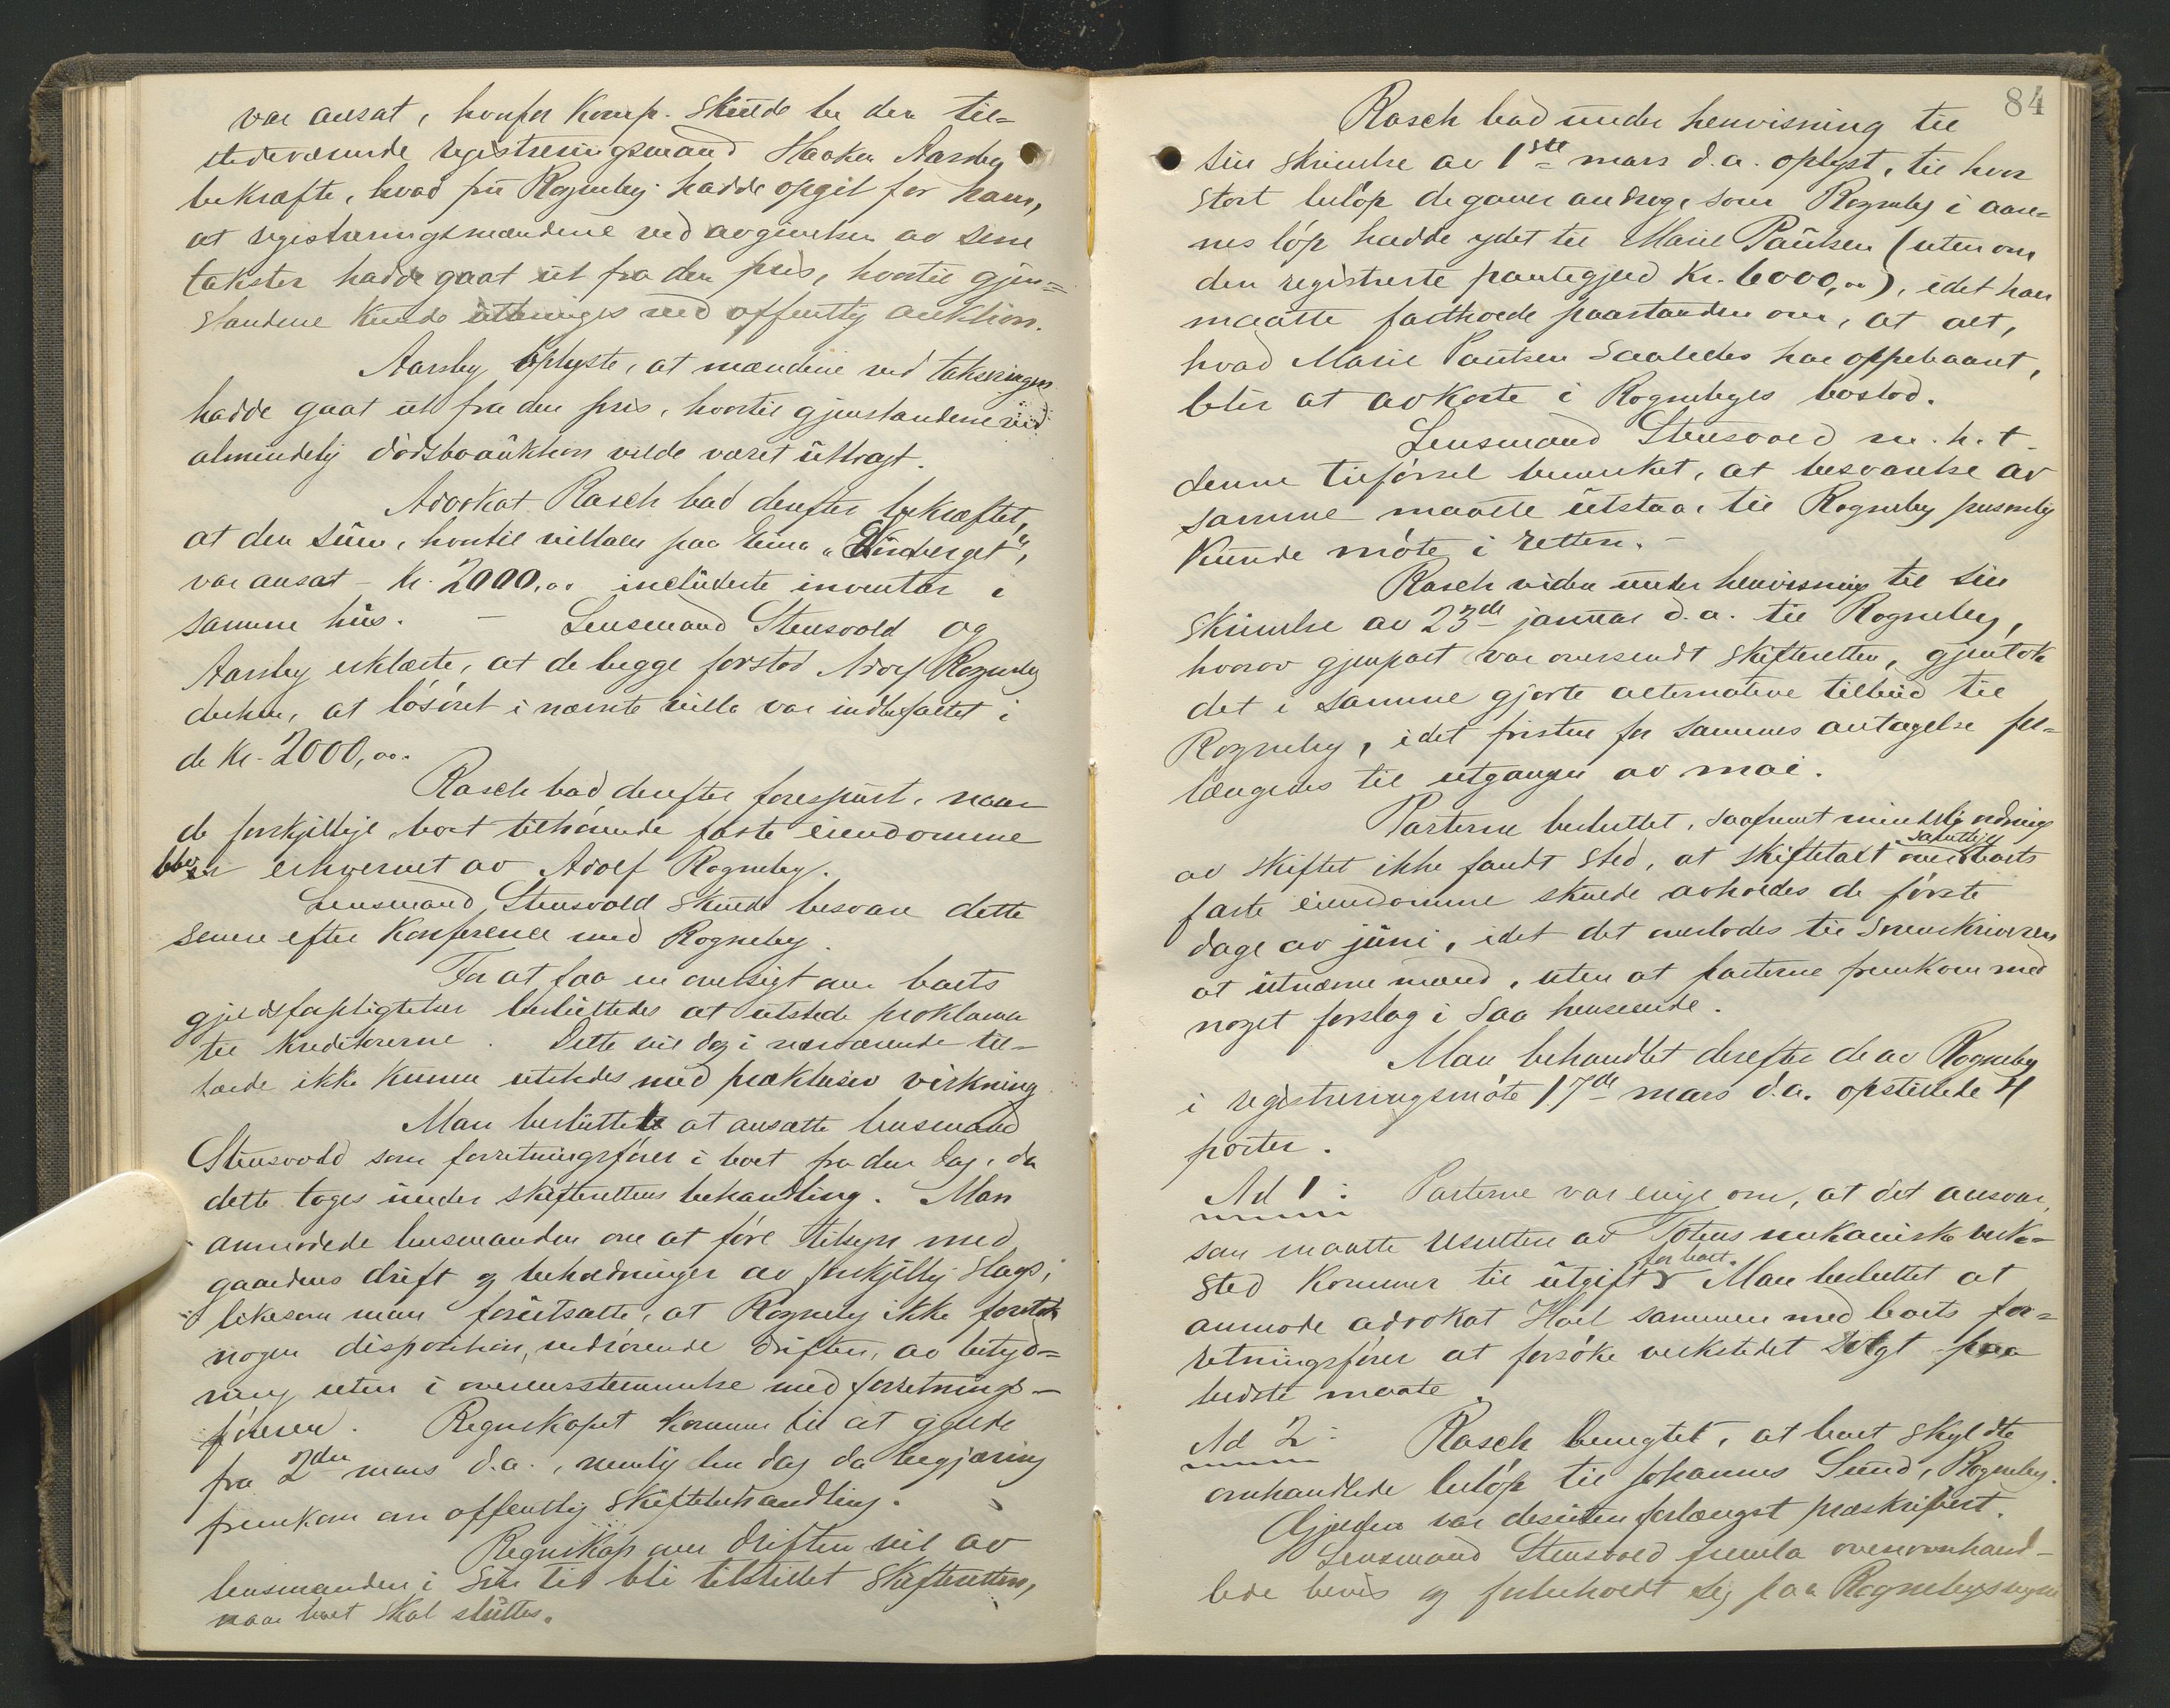 var ansat, hvorfor Komp. skulde be den til=
stedeværende registreringsmand Haakon Aarsby
bekræfte, hvad fru Rogneby hadde opgit for ham,
at registreringsmændene ved avgivelsen av sine
takster hadde gaat ut fra den pris, hvortil gjen=
standene kunde utbringes ved offentlig auktion.
Aarsby oplyste, at mændene ved takseringen
hadde gaat ut fra den pris, hvortil gjenstandene ved
almindelig dödsboauktion vilde været utbragt.
Advokat Rasch bad derefter bekræftet,
at den sum, hvortil villaen paa Eina
var ansat – kr. 2000,00 includerte inventar i
samme hus. – Lensmand Stensvold og
Aarsby erklærte, at de begge forstod Adolf Rogneby
derhen, at lösöret i nævnte villa var indbefattet i
de kr. 2000,00.
Rasch bad derefter forespurt, naar
de forskjellige boet tilhörende faste eiendomme
blev erhvervet av Adolf Rogneby.
Lensmand Stensvold skulde besvare dette
senere efter Konference med Rogneby.
For at faa en oversigt over boets
gjeldsforpligtelser besluttedes at utstede proklama
til kreditorerne. Dette vil dog i nærværende til-
fælde ikke kunne utstedes med præklusiv virkning.
Man besluttet at ansætte lensmand
Stensvold som forretningsförer i boet fra den dag, da
dette toges under skifterettens behandling. Man
anmodede lensmanden om at före tilsyn med
gaardens drift og beholdninger av forskjellig slags,
likesom man forutsatte, at Rogneby ikke foretok
nogen disposition, vedrörende driften, av betyd=
ning uten i overensstemmelse med forretnings-
föreren. Regnskapet kommer til at gjælde
fra 2den mars d.a., nemlig den dag da begjæring
fremkom om offentlig skiftebehandling.
Regnskap over driften vil av
lensmanden i sin tid bli tilstillet skifteretten,
naar boet skal sluttes.
84
Rasch bad under henvisning til
sin skrivelse av 1ste mars d.a. oplyst, til hvor
stort belöp de gaver androg, som Rogneby i aare=
nes löp hadde ydet til Marie Paulsen (utenom
den registrerte pantegjeld kr. 6000,00), idet han
maatte fastholde paastanden om, at alt,
hvad Marie Paulsen saaledes har oppebaaret,
blir at avkorte i Rognebyes boslod.
Lensmand Stensvold m. h. t.
denne tilförsel bemerket, at besvarelse av
samme maatte utstaa, til Rogneby personlig
kunde möte i retten. –
Rasch videre under henvisning til sin
skrivelse av 23de januar d.a. til Rogneby,
hvorav gjenpart var oversendt skifteretten, gjentok
det i samme gjorte alternative tilbud til
Rogneby, idet fristen for sammes antagelse for-
længedes til utgangen av mai.
Parterne besluttet, saafremt mindelig ordning
av skiftet ikke fandt sted, at skiftetakst over boets samtlige
faste eiendomme skulde avholdes de förste
dage av juni, idet det overlodes til sorenskriveren
at utnævne mænd, uten at parterne fremkom med
noget forslag i saa henseende.
Man behandlet derefter de av Rogneby
i registreringsmöte 17de mars d.a. opstillede 4
poster.
Ad 1: Parterne var enige om, at det ansvar,
som maatte resultere av Totens mekaniske verk-
sted kommer til utgift for boet. Man besluttet at
anmode advokat Hoel sammen med boets for=
retningsförer at forsöke verkstedet solgt paa
bedste maate.
Ad 2: Rasch benegtet, at boet skyldte
omhandlede belöp til Johannes Lund, Rogneby.
Gjælden var desuten forlængst præskribert.
Lensmand Stensvold fremla ovenomhand-
lede bevis og forbeholdt sig paa Rognebys vegne